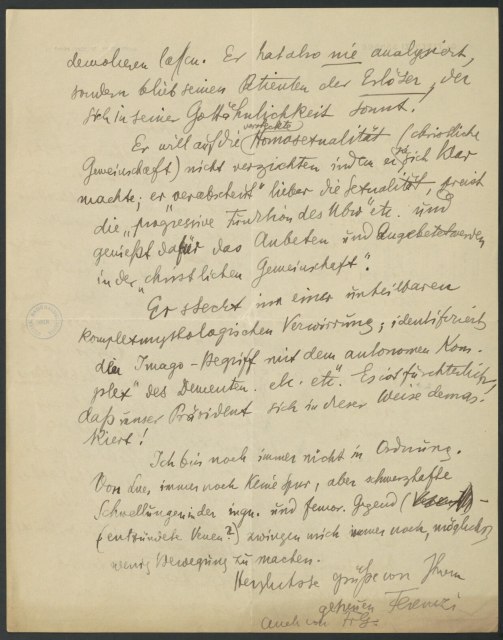 demolieren lassen. Er hat also nie analysiert,
sondern blieb seinen Patienten der Erlöser, der
sich in seiner Gottähnlichkeit sonnt!
Er will auf die versteckte Homosexualität (christliche
Gemeinschaft) nicht verzichten indem er sich klar
machte; er „verabscheut“ lieber die Sexualität, preist
die „progressive Funktion des Ubw“ etc. und
genießt dafür das Anbeten und Angebetetwerden
in der „christlichen Gemeinschaft“.
Er steckt in einer unteilbaren
komplexmythologischen Verwirrung; identifiziert
den Imago-Begriff mit dem „autonomen Kom-
plex“ des Dementen. etc. etc. Es ist fürchterlich,
daß unser Präsident sich in dieser Weise demas-
kiert!
Ich bin noch immer nicht in Ordnung.
Von Lues immer noch keine Spur, aber schmerzhafte
Schwellungen in der ingu. und femor. Gegend
(entzündete Venen?) zwingen mich immer noch, möglichst
wenig Bewegung zu machen.
Herzlichste Grüße von Ihrem
getreuen Ferenczi
Auch von Fr. G.